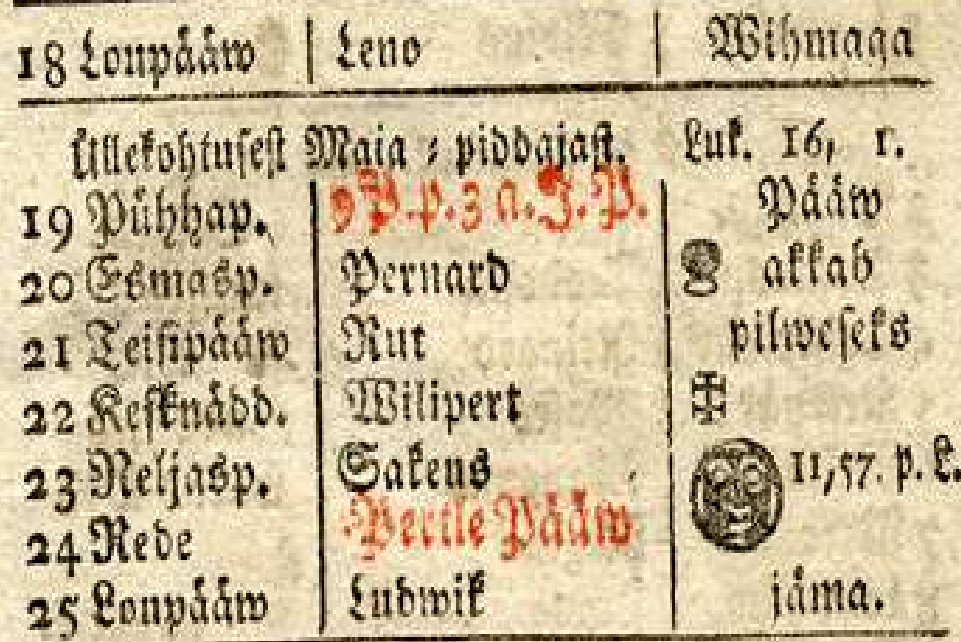 18 Loupääw Leno Wihmaga
Üllekohtusest Maja ⸗ piddajast. Luk. 16, 1.
19 Pühhap. 9 P. p. 3 a. J. P. Pääw
20 Esmasp. Pernard akkab
21 Teisipääw Rut pilweseks
22 Kesknädd. Wilipert
23 Neljasp. Sakeus 11,57. p. L.
24 Rede Pertle Pääw
25 Loupääw Ludwik jäma.